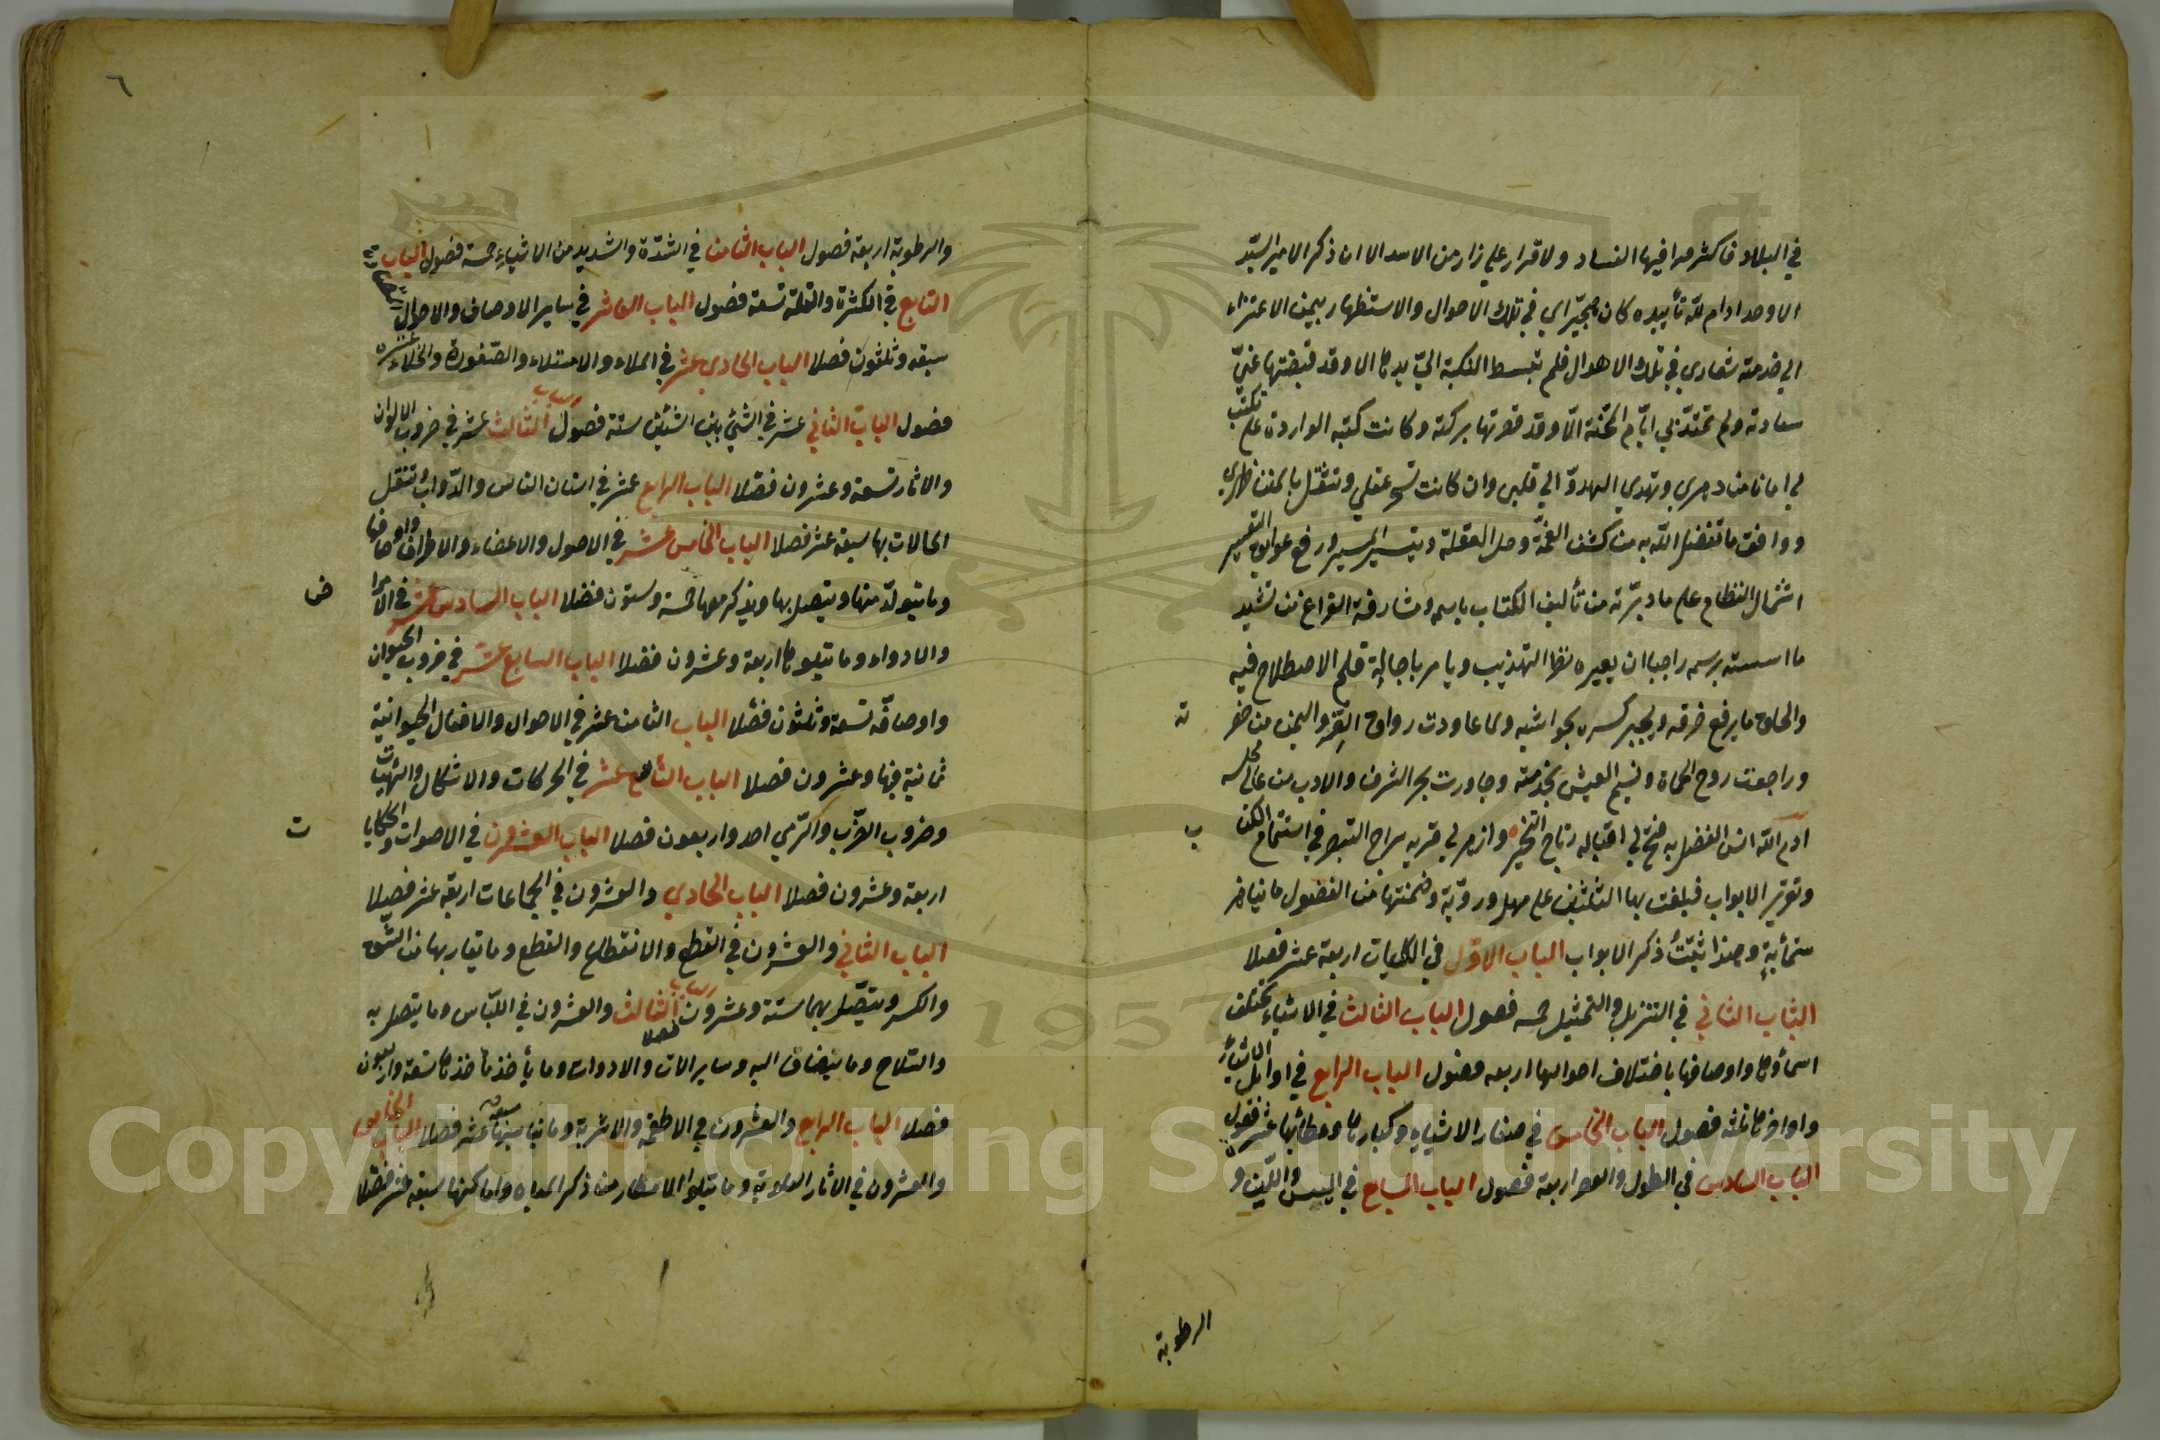 في البلاد فاكثروا فيها الفساد ولا قرار علي زار من الاسد الا ان ذكر الامير السيد
الاوحد ادام الله تأييده كان هجيراي في تلك الاحوال والاستظهار بيمن الاعتزاء
الي خدمته شعاري في تلك الاهوال فلم تبسط النكبة اليّ يدها الا وقد قبضتها عنيّ
سعادته ولم تمتدّ بي ايّام المحنة الّا وقد قصرتها بركته وكانت كتبه الواردة علي تكتب
لي امانا من دهري وتهدي الهدوّ الي قلبي وان كانت تسحر عقلي وتثقل بالمنن ظهري
ووافق ما تفضل الله به من كشف الغمّة وحل العقلة وتيسير المسير ورفع عوايق التعسير
اشتمال النظام علي ما دبّرته من تأليف الكتاب باسمه ومشارفة الفراغ من تشييد
ما اسسته برسمه راجيا ان يعيره نظر التهذيب ويامر باجالة قلم الاصلاح فيه
والحاق ما يرقع خرقه ويجبر كسره بحواشيه ولما عاودت رواق العز واليمن من حضرته
وراجعت روح الحياة ونسيم العيش بخدمته وجاورت بحر الشرف والادب من عالي مجلسه
ادام الله انس الفضل به فتح لي اقباله رتاج التخير وازهر لي قربه سراج التبصر في استتمام الكتاب
وتقرير الابواب فبلغت بها الثلثين علي مهل وروّية وضمنتها من الفصول ما يناهز
ستمأية وهذا ثبت ذكر الابواب الباب الاوّل في الكليات اربعة عشر فصلا
الباب الثاني في التنزيل والتمثيل خمسه فصول الباب الثالث في الاشياء تختلف
اسماؤها واوصافها باختلاف احوالها اربعه فصول الباب الرابع في اوايل الاشياء
واواخرها ثلثه فصول الباب الخامس في صغار الاشياء وكبارها وعظامها عشر فصول
الباب السادس في الطول والقصر اربعة فصول الباب السابع في اليبس واللّين و
الرطوبة
٦
والرطوبة اربعة فصول الباب الثامن في الشدّة والشديد من الاشياء خمسة فصول الباب
التاسع في الكثرة والقلّة تسعة فصول الباب العاشر في ساير الاوصاف والاحوال
سبعه وثلثون فصلا الباب الحادي عشر في الملاء والامتلاء والصّفورة والخلاء عشره
فصول الباب الثاني عشر في الشئ بين الشئين ستة فصول الباب الثالث عشر في ضروب الالوان
والاثار تسعة وعشرون فصلا الباب الرابع عشر في اسنان الناس والدّواب وتنقل
الحالات بها سبعة عشر فصلا الباب الخامس عشر في الاصول والاعضاء والاطراف واوصافها
وما يتولّد منها ويتصل بها ويذكر معها خمسة وستون فصلا الباب السادس عشر في الامراض
والادواء وما يتلوها اربعة وعشرون فصلا الباب السابع عشر في ضروب الحيوان
واوصافه تسعة وثلثون فصلا الباب الثامن عشر في الاحوال والافعال الحيوانية
ثمانية فيها وعشرون فصلا الباب التاسع عشر في الحركات والاشكال والهيئات
وضروب الضّرب والرّمي احد واربعون فصلا الباب العشرون في الاصوات والحكايات
اربعة وعشرون فصلا الباب الحادي والعشرون في الجماعات اربعة عشر فصلا
الباب الثاني والعشرون في القطع والانقطاع والقطع وما يقاربها من الشّق
والكسر ويتصّل بهما ستة وعشرون فصلا الباب الثالث والعشرون في اللبّاس وما يتصل به
والسّلاح وما ينضاف اليه وساير الات والادوات وما يأخذ مأخذها تسعة واربعون
فصلا الباب الرابع والعشرون في الاطعمة والاشربة وما يناسبها سبعة عشر فصلا الباب الخامس
والعشرون في الاثار العلوية وما يتلوا الامطار من ذكر المياه واماكنها سبعة عشر فصلا
Copyright © King Saud University
1957